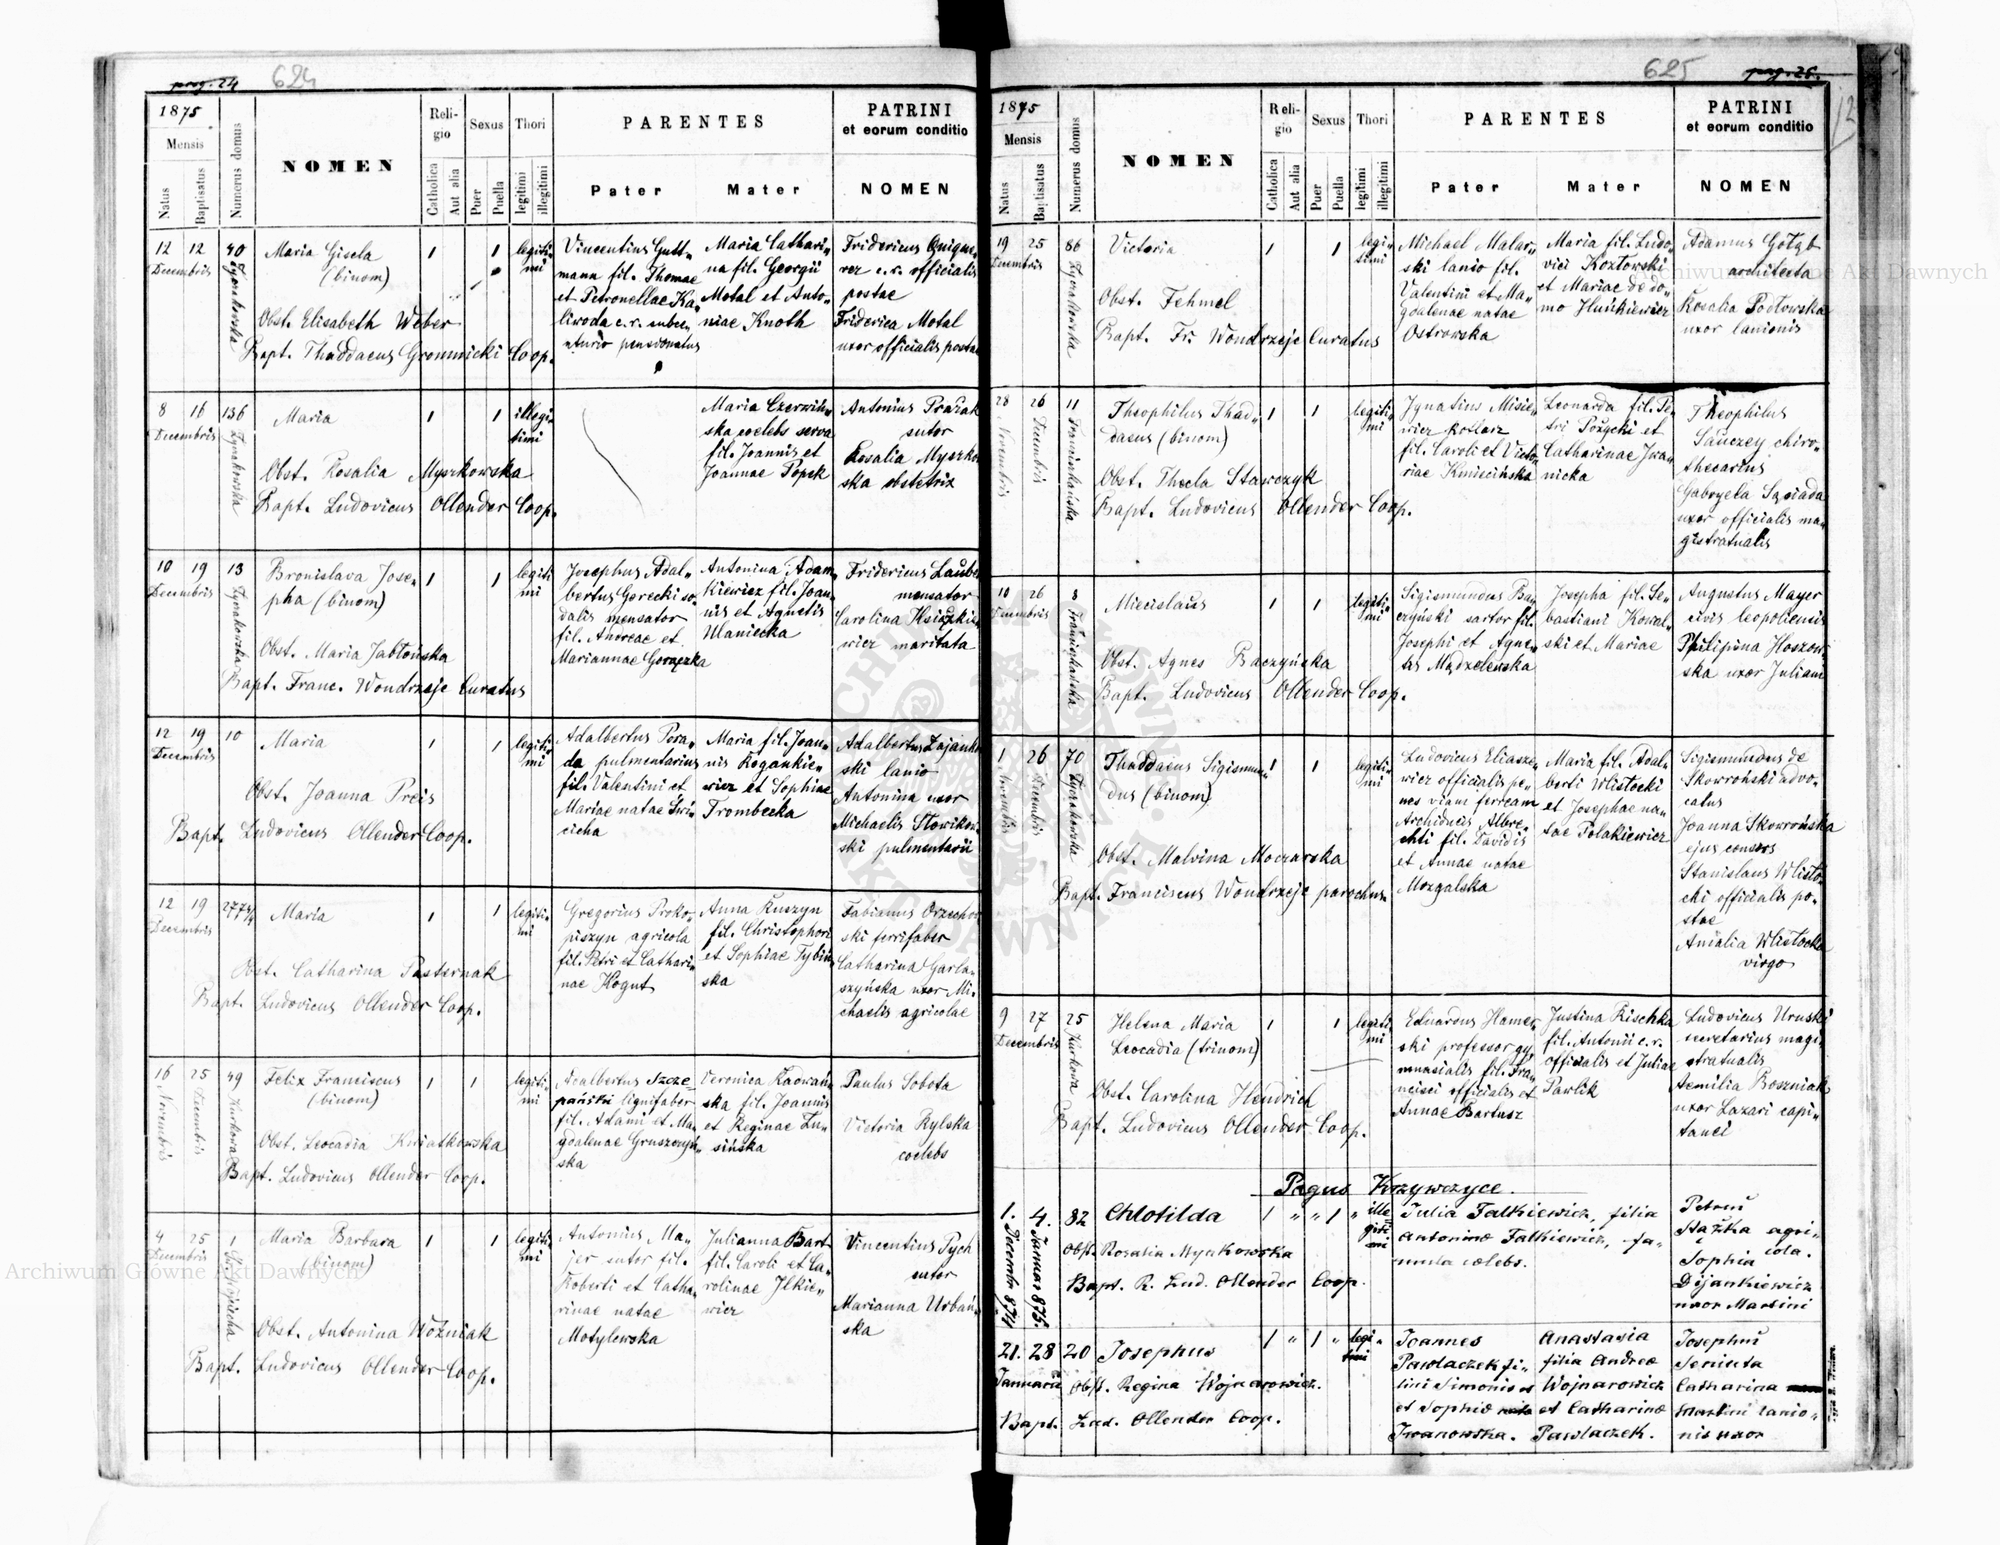 pag. 24
624
1875
Mensis
Natus
Baptisatus
Numerus domus
NOMEN
Religio
Catholica
Aut alia
Sexus
Puer
Puella
Thori
legitimi
illegitimi
PARENTES
Pater
Mater
PATRINI
et eorum conditio
NOMEN
12 12 40
Decembris
Łyczakowska
Maria Gisela
(binom)
Obst. Elisabeth Weber
Bapt. Thaddaeus Gromnicki Coop.
1 1 legiti-
mi
Vincentius Gutt-
mann fil. Thomae
et Petronellae Ka-
liwoda c. r.
pensionatus
Maria Cathari-
na fil. Georgii
Motal et Anto-
niae Knoth
Fridericus
c. r. officialis
postae
Friderica Motal
uxor officialis postae
8 16 136
Decembris
Łyczakowska
Maria
Obst. Rosalia Myszkowska
Bapt. Ludovicus Ollender Coop.
1 1 illegi-
timi
Maria Czerwiń-
ska coelebs serva
fil. Joannis et
Joannae Popek
Antonius Prażak
sutor
Rosalia Myszko
ska obstetrix
10 19 13
Decembris
Łyczakowska
Bronislava Jose-
pha (binom)
Obst. Maria Jabłońska
Bapt. Franc. Wondrzeje Curatus
1 1 legiti-
mi
Josephus Adal-
bertus Gorecki so-
dalis mensator
fil. Andreae et
Mariannae Gorączka
Antonina Adam-
kiewicz fil. Joan-
nis et Agnetis
Ulaniecka
Fridericus Laube
mensator
Carolina Książkie-
wicz maritata
12 19 10
Decembris
Maria
Obst. Joanna Preis
Bapt. Ludovicus Ollender Coop.
1 1 legiti-
mi
Adalbertus Pora-
da pulmentarius
fil. Valentini et
Mariae natae Świ-
cicha
Maria fil. Joan-
nis Rogankie-
wicz et Sophiae
Trombecka
Adalbertus Zająnk
ski lanio
Antonina uxor
Michaelis Słowikow-
ski pulmentarii
12 19 277 3/4
Decembris
Maria
Obst. Catharina Pasternak
Bapt. Ludovicus Ollender Coop.
1 1 legiti-
mi
Gregorius Proko-
piszyn agricola
fil. Petri et Cathari-
nae Hogut
Anna Kuszyn
fil. Christophori
et Sophiae Tybiń-
ska
Fabianus Orzechow
ski ferrifaber
Catharina Garla-
szyńska uxor Mi-
chaelis agricolae
16 25 49
Novembris
Decembris
Kurkowa
Felix Franciscus
(binom)
Obst. Leocadia Kwiatkowska
Bapt. Ludovicus Ollender Coop.
1 1 legiti-
mi
Adalbertus Szcze-
pański lignifaber
fil. Adami et Ma-
gdalenae Gruszczyń-
ska
Veronica Radwań-
ska fil. Joannis
et Reginae Zu-
sińska
Paulus Sobota
Victoria Rylska
coelebs
4 25 1
Decembris
Maria Barbara
(binom)
Obst. Antonina Woźniak
Bapt. Ludovicus Ollender Coop.
1 1 legiti-
mi
Antonius Ma-
jer sutor fil.
Roberti et Catha-
rinae natae
Motylewska
Julianna Bart
fil. Caroli et Ca-
rolinae Jlkie-
wicz
Vincentius Pych
sutor
Marianna Urbań-
ska
625
pag. 25.
12
1875
Mensis
Natus
Baptisatus
Numerus domus
NOMEN
Religio
Catholica
Aut alia
Sexus
Puer
Puella
Thori
legitimi
illegitimi
PARENTES
Pater
Mater
PATRINI
et eorum conditio
NOMEN
19 25 86
Decembris
Łyczakowska
Victoria
Obst. Fehmel
Bapt. Fr. Wondrzeje Curatus
1 1 legi-
timi
Michael Malar-
ski lanio fil.
Valentini et Ma-
gdalenae natae
Ostrowska
Maria fil. Ludo-
vici Kozłowski
et Mariae de do-
mo Huńkiewicz
Adamus Gołąb
architecta
Rosalia Podłowska
uxor lanionis
28 26 11
Novembris
Decembris
Franciszkańska
Theophilus Thad-
daeus (binom)
Obst. Thecla Stawczyk
Bapt. Ludovicus Ollender Coop.
1 1 legiti-
mi
Jgnatius Misie-
wicz kollarz
fil. Caroli et Victo-
riae Kmiecińska
Leonarda fil. Pe-
tri Pożycki et
Catharinae Jwa-
nicka
Theophilus
Sauczey chiro-
thecarius
Gabryela Sąsiada
uxor officialis ma-
gistratualis
10 26 8
Decembris
Franciszkańska
Miecislaus
Obst. Agnes Baczyńska
Bapt. Ludovicus Ollender Coop.
1 1 legiti-
mi
Sigismundus Ba-
czyński sartor fil.
Josephi et Agne-
tis Mądzelewska
Josepha fil. Se-
bastiani Kowal-
ski et Mariae
Augustus Mayer
civis leopoliensis
Philipina Hoszow-
ska uxor Juliani
1 26 70
Novembris
Decembris
Łyczakowska
Thaddaeus Sigismun-
dus (binom)
Obst. Malvina Moczarska
Bapt. Franciscus Wondrzeje parochus
1 1 legiti-
mi
Ludovicus Eliasze-
wicz officialis pe-
nes viam ferream
Archiducis Albre-
chti fil. Davidis
et Annae natae
Mozgalska
Maria fil. Adal-
berti Wlisłocki
et Josephae na-
tae Polakiewicz
Sigismundus de
Skowroński advo-
catus
Joanna Skowrońska
ejus consors
Stanislaus Wlisło-
cki officialis po-
stae
Amalia Wlisłocka
virgo
9 27 25
Decembris
Kurkowa
Helena Maria
Leocadia (trinom)
Obst. Carolina Hendrich
Bapt. Ludovicus Ollender Coop.
1 1 legiti-
mi
Eduardus Hamer-
ski professor gy-
mnasialis fil. Fran-
cisci officialis et
Annae Bartusz
Justina Rischka
fil. Antonii c. r.
officialis et Juliae
Pawlik
Ludovicus Uruski
secretarius magi-
stratualis
Aemilia Boszniak
uxor Lazari capi-
tanei
Pagus Krzywczyce.
1. 4. 82
Decembr 874
Januar 875.
Chlotilda
Obst. Rosalia Myszkowska
Bapt. R. Lud. Ollender Coop.
1 " " 1 " ille-
giti-
mi
Julia Falkiewicz, filia
Antoninae Falkiewicz, fa-
mula coelebs.
Petrus
Stażka agri-
cola.
Sophia
Dejankiewicz
uxor Martini
21. 28 20
Januarii
Josephus
Obst. Regina Wojnarowicz.
Bapt. Lud. Ollender Coop.
1 " 1 " legi-
timi
Joannes
Pawlaczek fi-
lius Simonis et
et Sophiae nata
Iwanowska.
Anastasia
filia Andreae
Wojnarowicz
et Catharinae
Pawlaczek.
Josephus
Seniuta
Catharina
Martini lanio-
nis uxor
Archiwum Główne Akt Dawnych
Archiwum Główne Akt Dawnych